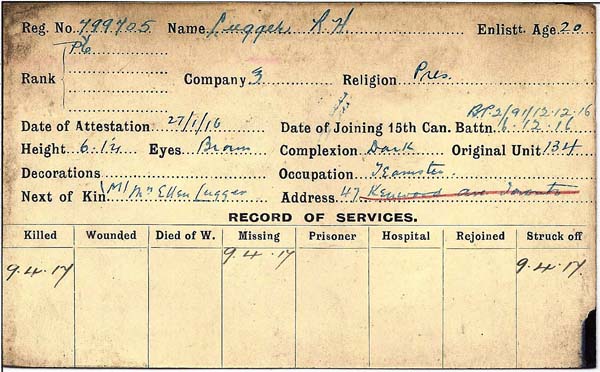 Reg. No. 799705 Name Lugger R H Enlistt. Age 20
Pte
Rank Company 3 Religion Pres.
B.P.2/91/12.12.16
Date of Attestation 27/1/16 Date of Joining 15th Can. Battn. 6.12.16
Height 6.1½ Eyes Brown Complexion Dark Original Unit 134
Decorations Occupation Teamster
Next of Kin (M) Mrs Ellen Lugger Address 47 Kenwood ave Toronto
RECORD OF SERVICES.
Killed Wounded Died of W. Missing Prisoner Hospital Rejoined Struck off
9.4.17 9.4.17 9.4.17